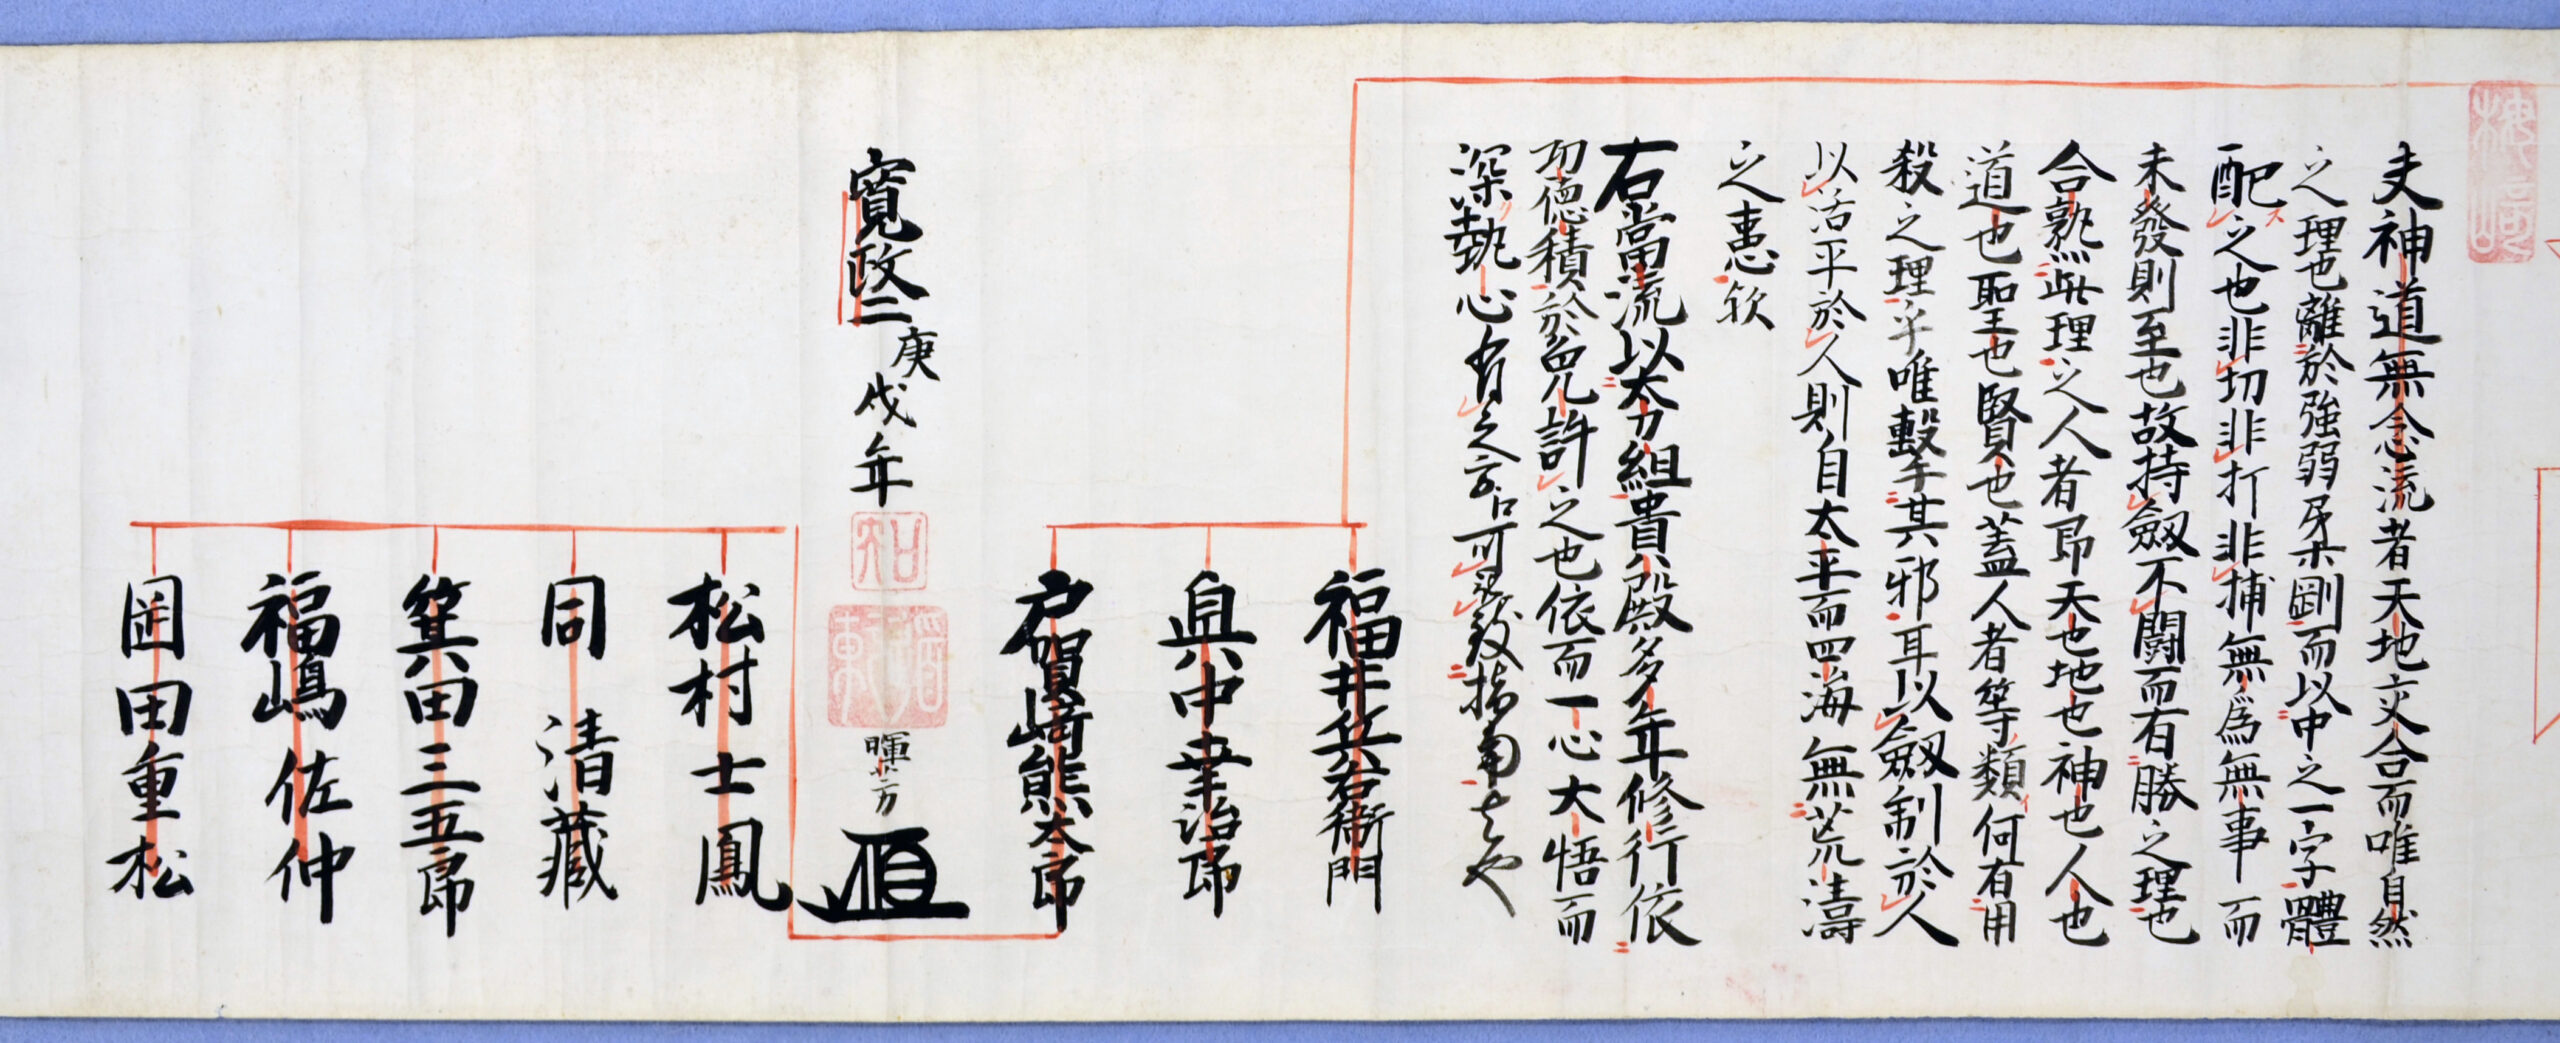 夫神道無念流者天地文合而唯自然
之理也離於強弱柔剛而以中之一字體
配ス之也非切非打非捕無為無事而
未發則至也故持劔不闘而有勝之理也
合熟此理之人者即天也地也神也人也
道也聖也賢也蓋人者等類何有用
殺之理乎唯擊其邪耳以劔制於人
以活平於人則自太平而四海無荒濤
之患欤
右當流以太刀組貴殿多年修行依
功徳積於免許之也依而一心大悟而
深執心有之
福井兵右衛門
奥中幸治郎
戸賀崎熊太郎
暉芳
寛政二庚戌年
松村士鳳
同清藏
箕田三五郎
福嶋佐仲
岡田重松